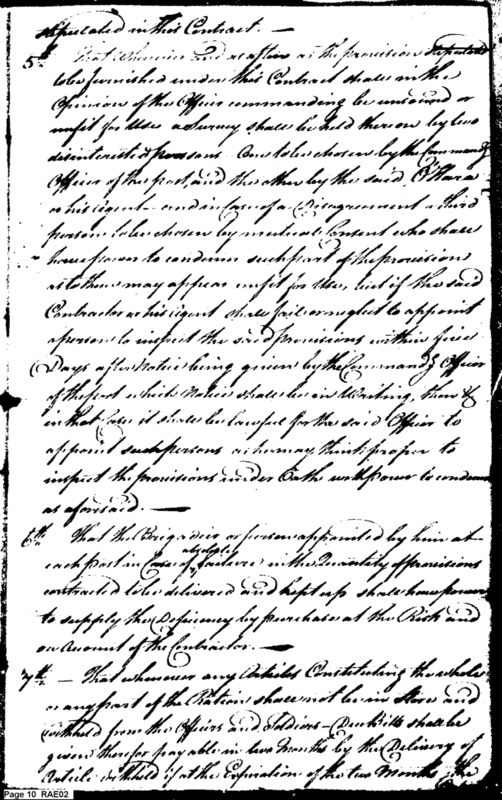 stipulated in this Contract. —
5th That whenever and as often as the provision stipulated
to be furnished under this Contract shall in the
Opinion of the Officer commanding be unsound or
unfit for Use a Survey shall be held thereon by two
disinterested persons One to be chosen by the Command.g
Officer of the post and the other by the said O'Hara
or his Agent and in Case of a Disagreement a third
person to be chosen by mutual Consent who shall
have power to condemn such part of the provision
as to them may appear unfit for Use, but if the said
Contractor or his Agent shall fail or neglect to appoint
a person to inspect the said provisions within five
Days after Notice being given by the Command.g Officer
of the post which Notice shall be in Writing, then &
in that Case it shall be lawful for the said Officer to
appoint such persons as he may think proper to
inspect the provisions under Oath with power to condemn
as aforesaid. —
6th That the Brigadier or person appointed by him at
each post in Case of absolute failure in the Quantity of provisions
contracted to be delivered and kept up shall have power
to supply the Deficiency by purchase at the Risk and
on Account of the Contractor. —
7th — That whenever any Articles Constituting the whole
or any part of the Ration shall not be in Store and
withheld from the Officers and Soldiers — Due Bills shall be
given therefor payable in two Months by the Delivery of
Article withheld if at the Expiration of the two Months the
Page 10 RAE02